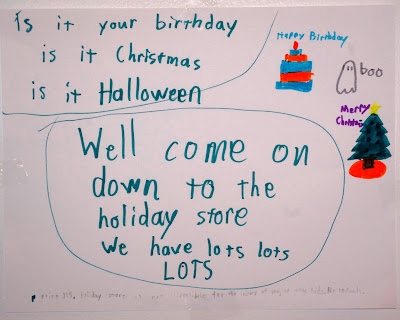 is it your birthday
is it Christmas
is it Halloween
Happy Birthday
boo
Merry
Christmas
Well come on
down to the
holiday store
We have lots lots
LOTS
holiday store is not for the